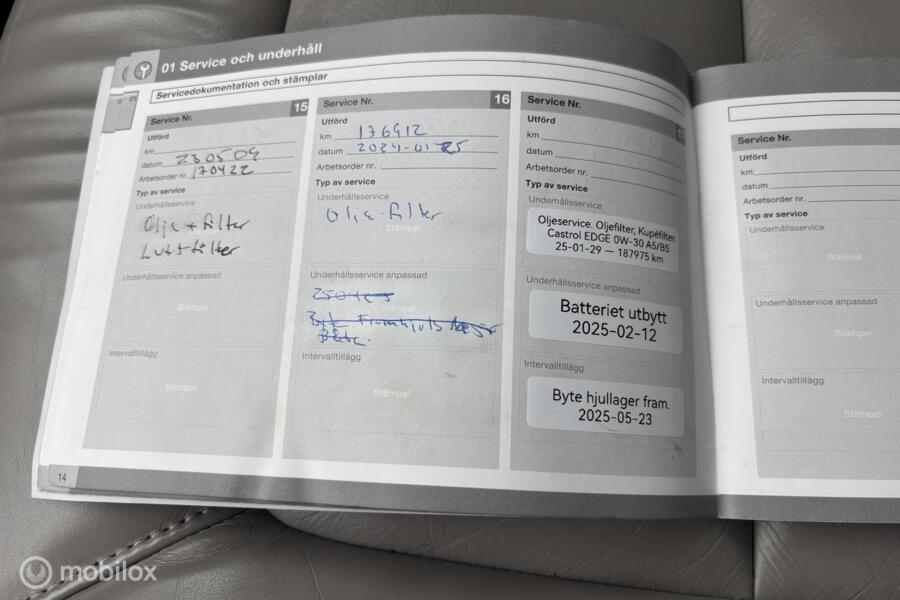 01 Service och underhåll
Servicedokumentation och stämplar
01
15
Service Nr.
Utförd
km
datum 230509
Arbetsorder nr. 170422
Typ av service
Underhållsservice
Olje + filter
Luftfilter
Underhållsservice anpassad
Stämpel
Intervalltillägg
Stämpel
14
16
Service Nr.
Utförd
km 176912
datum 2024-01-25
Arbetsorder nr.
Typ av service
Underhållsservice
Olje. filter
Stämpel
Underhållsservice anpassad
Byte Framhjuls
Intervalltillägg
Stämpel
Service Nr.
17
Utförd
km
datum
Arbetsorder nr.
Typ av service
Underhållsservice
Oljeservice. Oljefilter, Kupéfilter.
Castrol EDGE 0W-30 A5/B5
25-01-29 — 187975 km
Underhållsservice anpassad
Batteriet utbytt
2025-02-12
Intervalltillägg
Byte hjullager fram.
2025-05-23
Service Nr.
Utförd
km
datum
Arbetsorder nr.
Typ av service
Underhållsservice
Stämpel
Underhållsservice anpassad
Stämpel
Intervalltillägg
Stämpel
mobilox